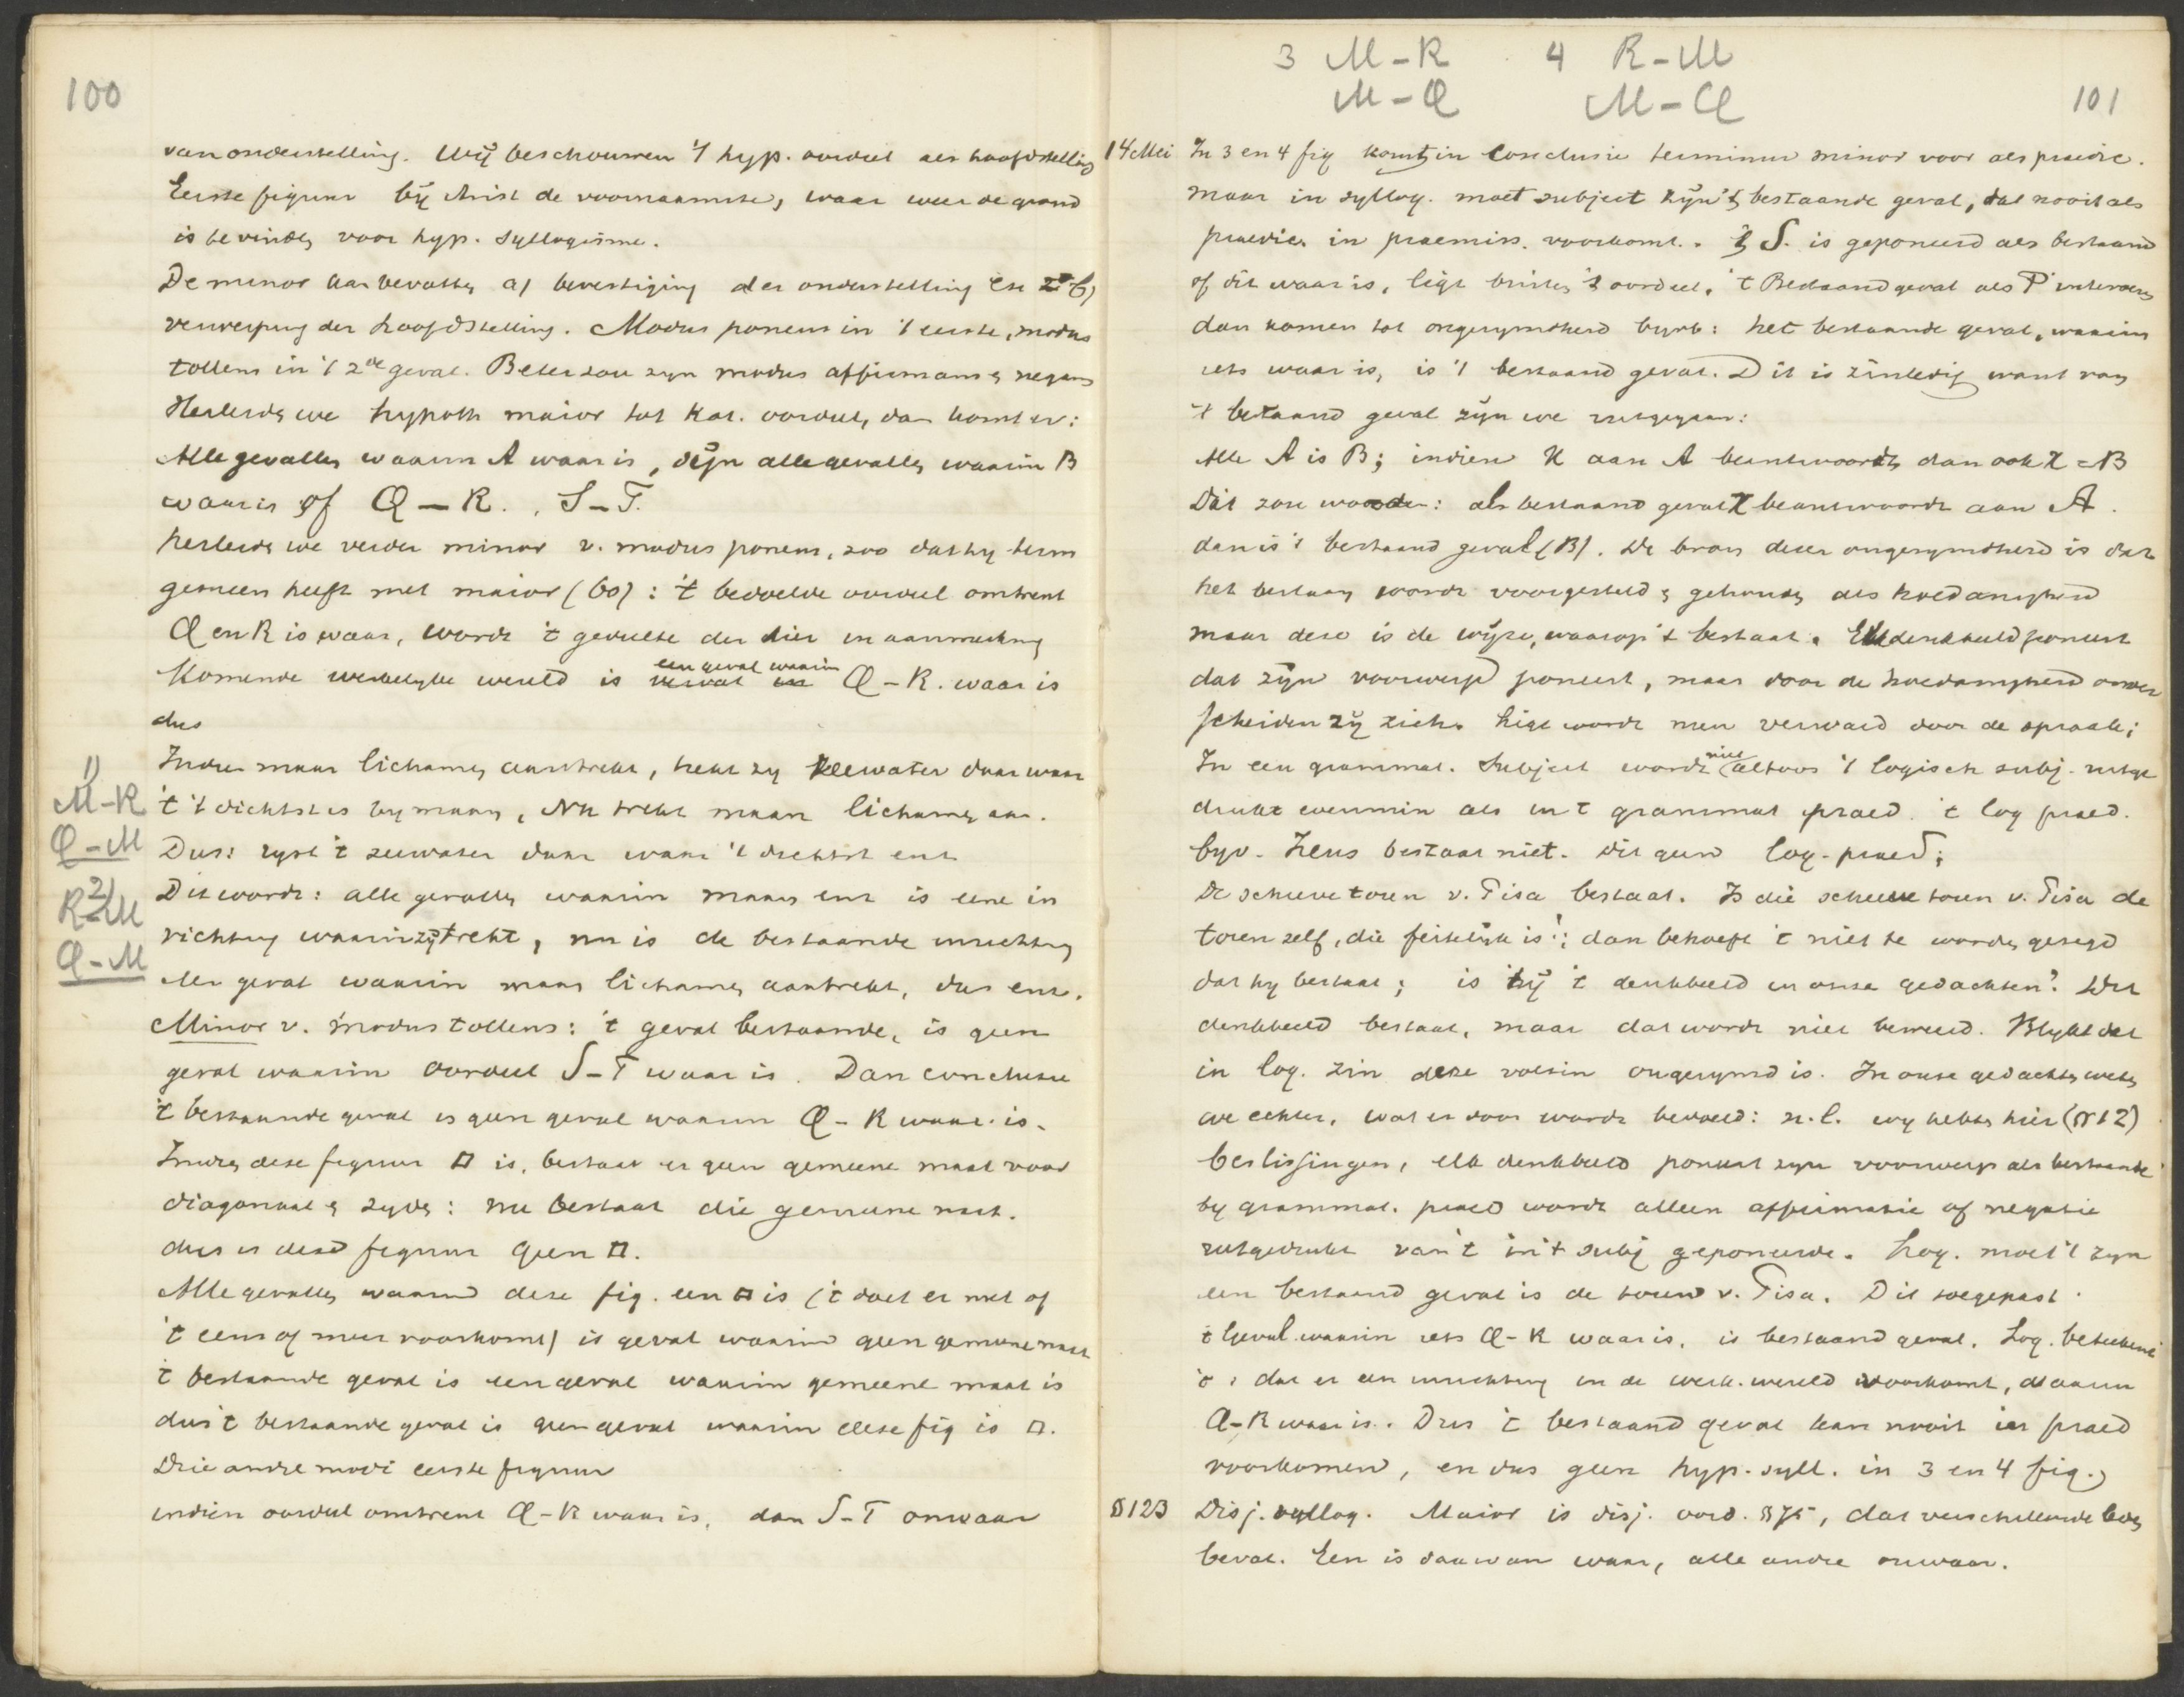 100
van onderstelling. Wij beschouwen 't hyp. oordeel als hoofdstelling
Eerste figuur bij Arist de voornaamste, waar weer de grond
is te vinden voor hyp. syllogisme.
De minor kan bevatten a) bevestiging der onderstelling en b)
verwerping der hoofdstelling. Modus ponens in 't eerste, modus
tollens in 't 2de geval. Beter zou zyn modus affirmans & negans
Herleide we hypoth maior tot kat. oordeel, dan komt er:
Alle gevallen waarin A waar is, zijn alle gevallen waarin B
waar is of Q – R. , S – T.
herleide we verder minor v. modus ponens, zoo dat hy term
gemeen heeft met maior (60) : 't bedoelde oordeel omtrent
Q en R is waar, wordt 't gedeelte der hier in aanmerking
Komende werkelyke wereld is een geval waarin Q – R. waar is
dus
Indien maan lichamen aantrekt, heft zy zeewater daar waar
1)
M–R
Q–M
2)
R–M
Q–M
't 't dichtst is by maan, Nu trekt maan lichamen aan.
Dus: ryst 't zeewater daar waar 't dichtst enz
Dit wordt: alle gevallen waarin maan enz is eene in
richting waarin zij trekt, nu is de bestaande inrichting
een geval waarin maan lichamen aantrekt, dus enz.
Minor v. modus tollens: 't geval bestaande, is geen
geval waarin oordeel S – T waar is. Dan conclusie
't bestaande geval is geen geval waarin Q – R waar is.
Indien deze figuur □ is, bestaat er geen gemeene maat voor
diagonaal & zyde: nu bestaat die gemeene maat.
dus is deze figuur geen □.
Alle gevallen waarin deze fig. een □ is (t doet er niet of
't eens of meer voorkomt) is geval waarin geen gemeene maat
't bestaande geval is een geval waarin gemeene maat is
dus 't bestaande geval is geen geval waarin deze fig is □.
Drie andre modi eerste figuur
indien oordeel omtrent Q – R waar is, dan S – T onwaar
3 M – R 4 R – M
M – Q M – Q
101
14 Mei In 3 en 4 fig komt in conclusie terminus minor voor als praedic.
maar in syllog. moet subject zijn 't bestaande geval, dat nooit als
praedic. in praemiss. voorkomt. 't S. is geponeerd als bestaand
of dit waar is, ligt buiten 't oordeel. 't Bestaand geval als P
dan komen tot ongerymdheid byvb: het bestaande geval, waarin
iets waar is, is 't bestaand geval. Dit is zinledig want van
't bestaand geval zijn we uitgegaan:
Alle A is B; indien X aan A beantwoordt dan ook X = B
Dit zou worden: als bestaand geval X beantwoordt aan A.
dan is 't bestaand geval (B). De bron dezer ongerymdheid is dat
het bestaan wordt voorgesteld & gehouden als hoedanigheid
maar deze is de wijze, waarop 't bestaat. Elk denkbeeld poneert
dat zijn voorwerp poneert, maar door de hoedanigheid onder
scheiden zij zich. Ligt wordt men verward door de spraak;
In een grammat. subject wordt niet altoos 't logisch subj. uitge
drukt evenmin als in 't grammat praed. 't log praed.
byv. Zeus bestaat niet. dit geen log. praed;
De scheve toren v. Pisa bestaat. Is die scheve toren v. Pisa de
toren zelf, die feitelijk is; dan behoeft 't niet te worden gezegd
dat hy bestaat; is hij 't denkbeeld in onze gedachten? Dit
denkbeeld bestaat, maar dat wordt niet beweerd. Blykt dat
in log. zin deze volzin ongerymd is. In onze gedachten weten
we echter, wat er door wordt bedoeld: n.l. wy hebben hier (§ 12)
beslissingen, elk denkbeeld poneert zyn voorwerp als bestaande
by grammat. praed wordt alleen affirmatie of negatie
uitgedrukt van 't in 't subj geponeerde. Log. moet 't zyn
een bestaand geval is de toren v. Pisa. Dit toegepast
't geval waarin iets Q – R waar is, is bestaand geval. Log. beteekent
't: dat er een inrichting in de werk. wereld voorkomt, waarin
Q – R waar is. Dus 't bestaand geval kan nooit in praed
voorkomen, en dus geen hyp. syll. in 3 en 4 fig.
§ 123 Disj. syllog. Maior is disj. oord. § 75, dat verschillende
bevat. Een is daarvan waar, alle andre onwaar.